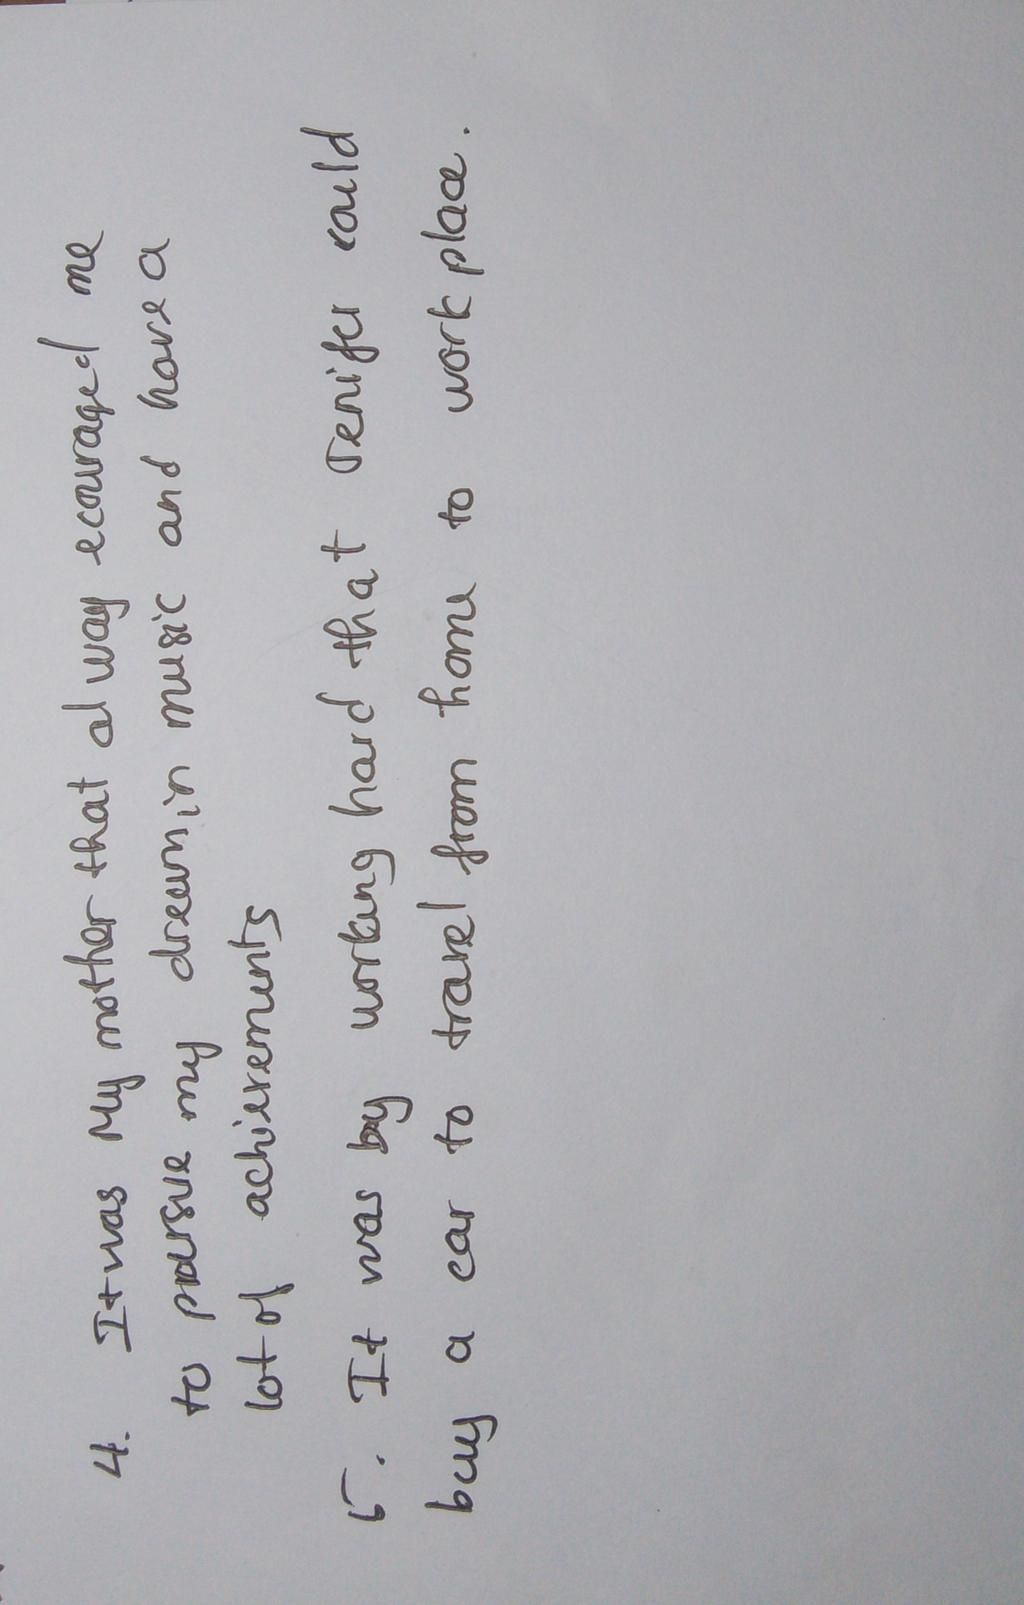 4. It was My mother that alway ecouraged me
to pursue my dream in music and have a
lot of achievements
5. It was by working hard that Jenifer could
buy a car to travel from home to work place.